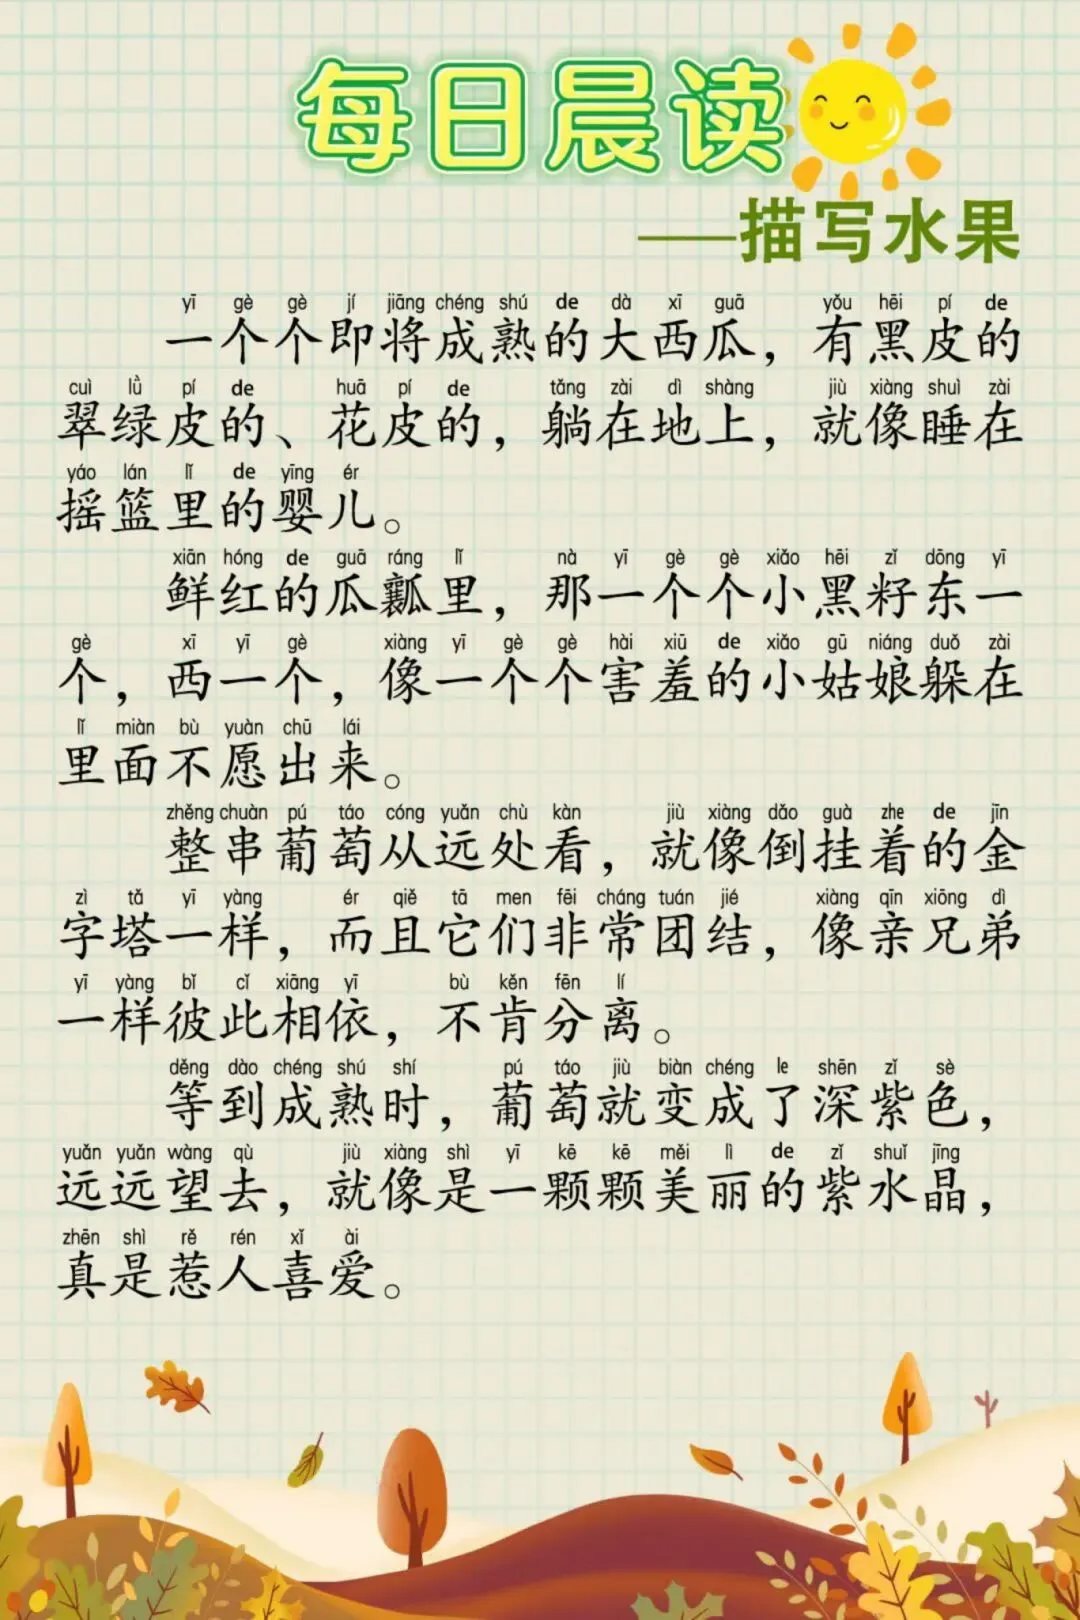 每日晨读
——描写水果
yī gè gè jí jiāng chéng shú de dà xī guā yǒu hēi pí de
一个个即将成熟的大西瓜，有黑皮的
cuì lǜ pí de huā pí de tǎng zài dì shàng jiù xiàng shuì zài
翠绿皮的、花皮的，躺在地上，就像睡在
yáo lán lǐ de yīng ér
摇篮里的婴儿。
xiān hóng de guā ráng lǐ nà yī gè gè xiǎo hēi zǐ dōng yī
鲜红的瓜瓤里，那一个个小黑籽东一
gè xī yī gè xiàng yī gè gè hài xiū de xiǎo gū niáng duǒ zài
个，西一个，像一个个害羞的小姑娘躲在
lǐ miàn bù yuàn chū lái
里面不愿出来。
zhěng chuàn pú táo cóng yuǎn chù kàn jiù xiàng dǎo guà zhe de jīn
整串葡萄从远处看，就像倒挂着的金
zì tǎ yī yàng ér qiě tā men fēi cháng tuán jié xiàng qīn xiōng dì
字塔一样，而且它们非常团结，像亲兄弟
yī yàng bǐ cǐ xiāng yī bù kěn fēn lí
一样彼此相依，不肯分离。
děng dào chéng shú shí pú táo jiù biàn chéng le shēn zǐ sè
等到成熟时，葡萄就变成了深紫色，
yuǎn yuǎn wàng qù jiù xiàng shì yī kē kē měi lì de zǐ shuǐ jīng
远远望去，就像是一颗颗美丽的紫水晶，
zhēn shì rě rén xǐ ài
真是惹人喜爱。